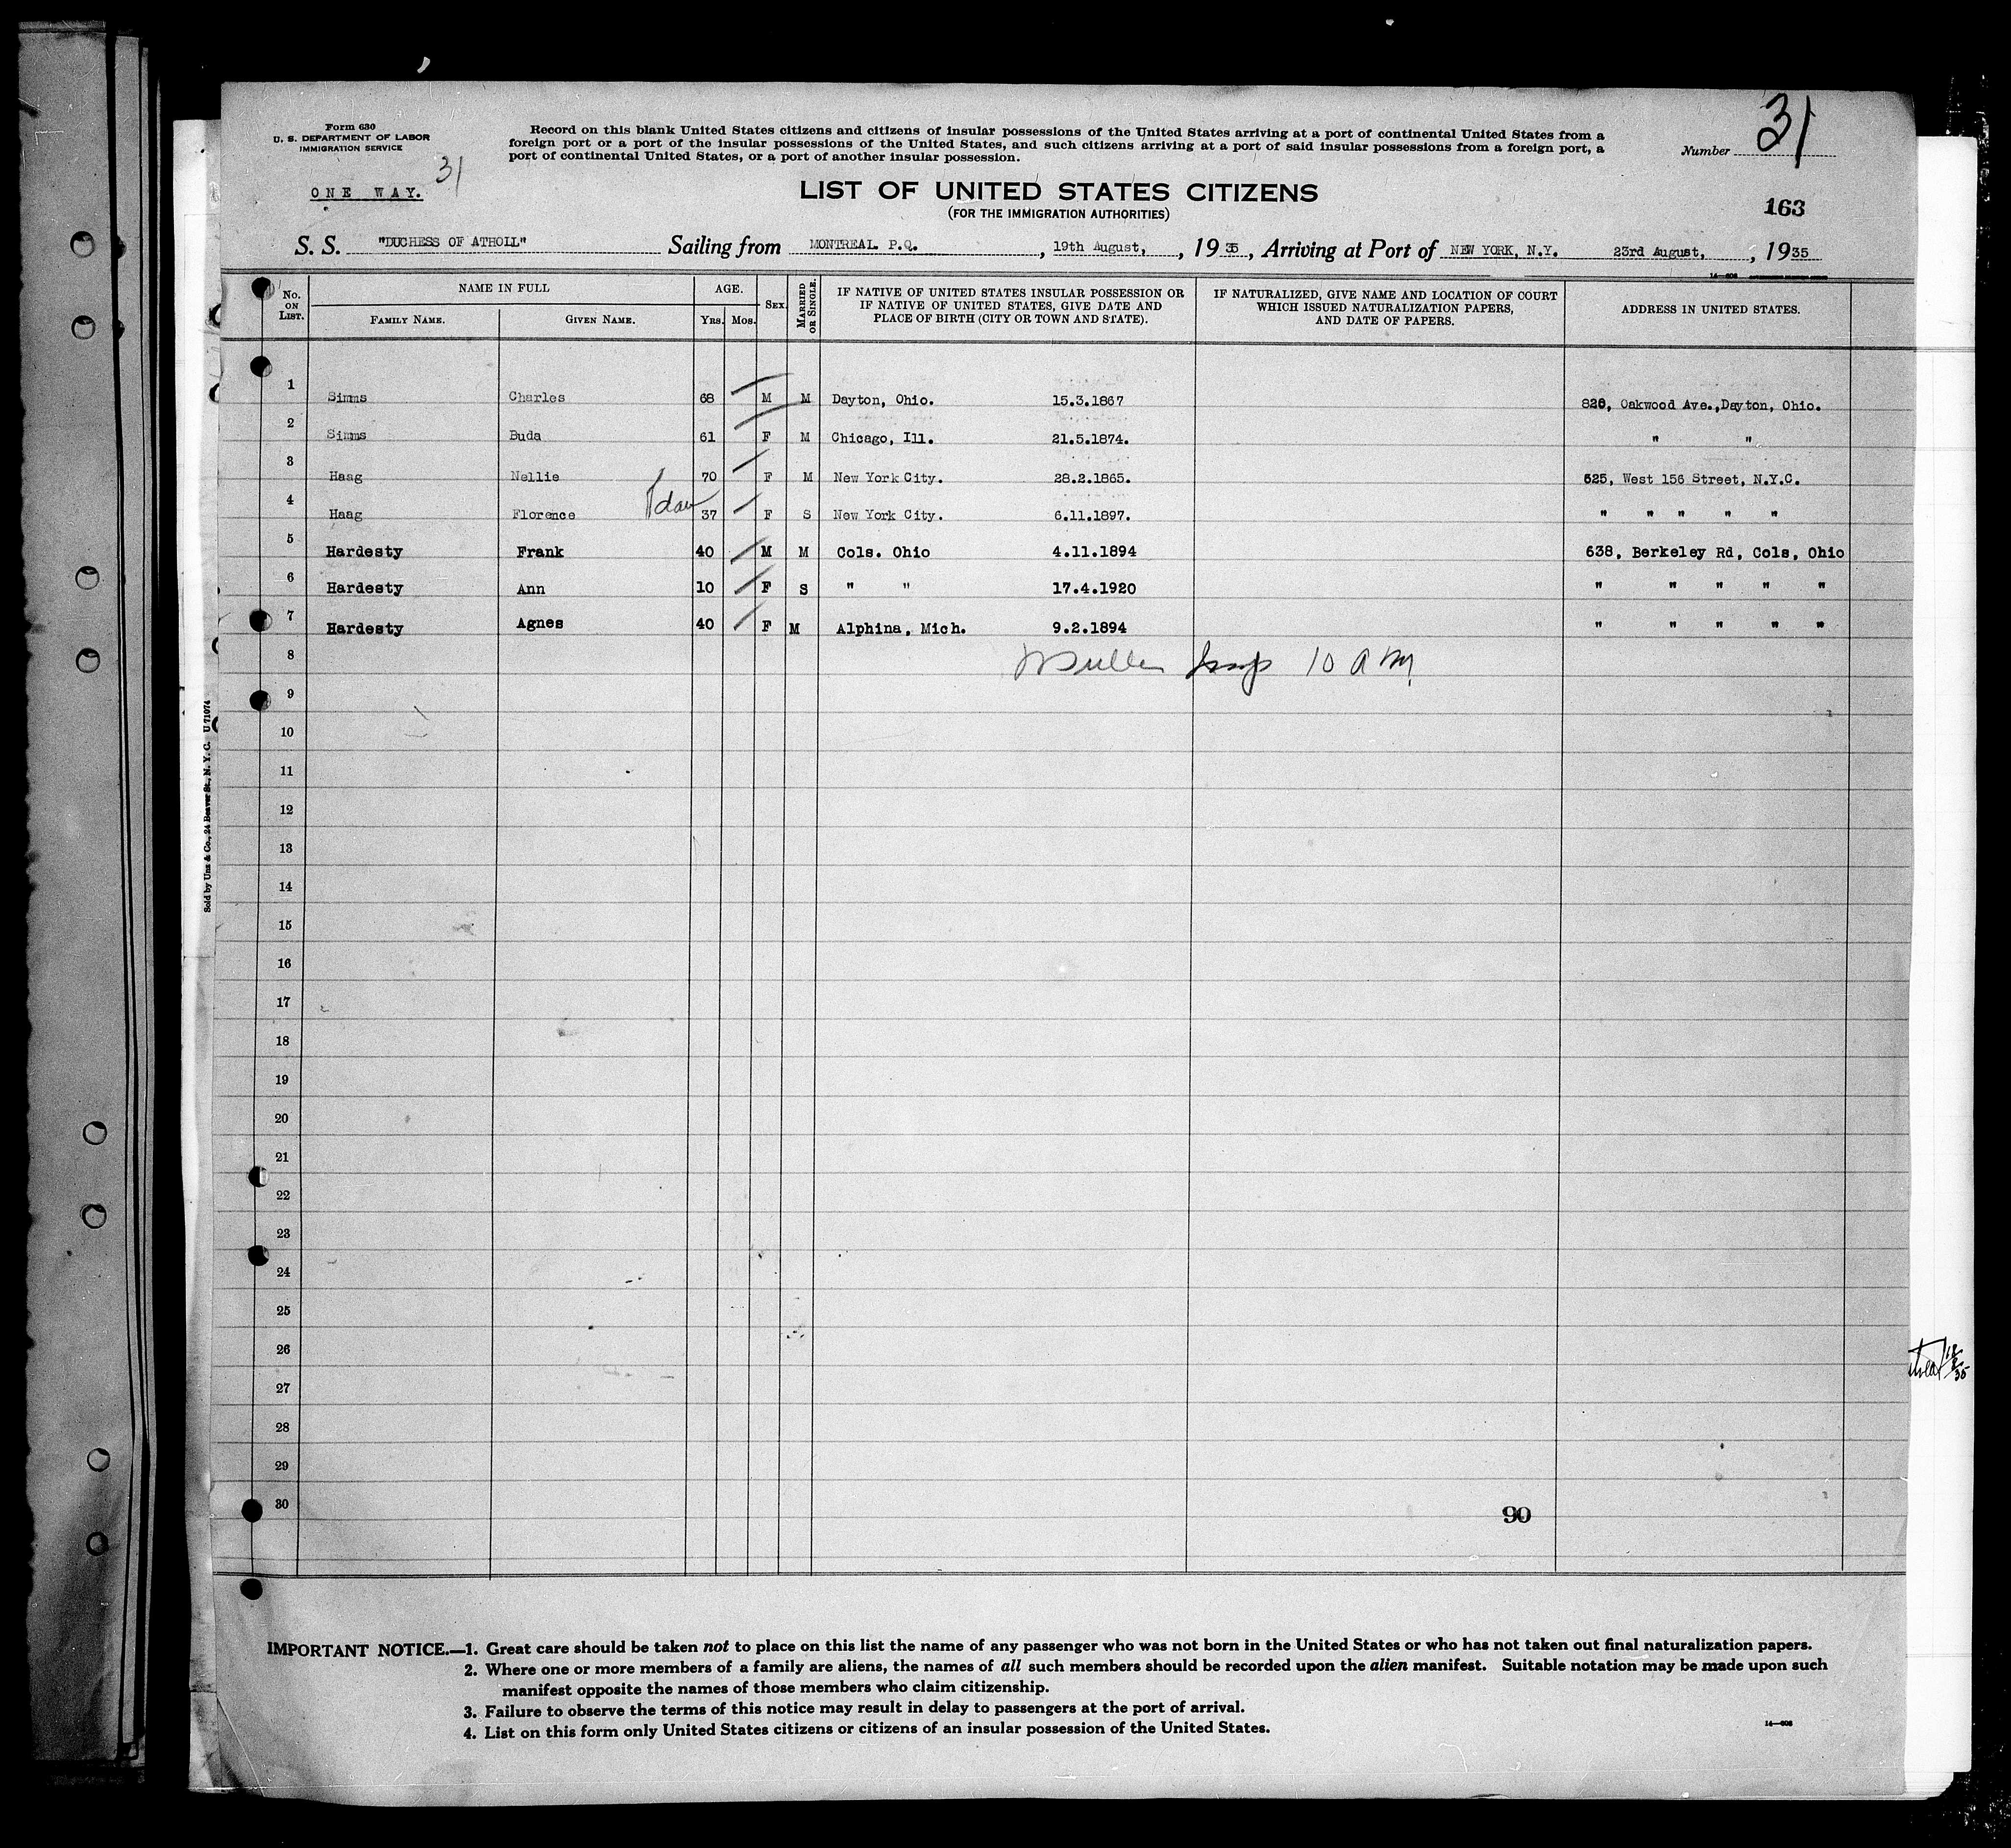 Form 630
U. S. DEPARTMENT OF LABOR
IMMIGRATION SERVICE
Record on this blank United States citizens and citizens of insular possessions of the United States arriving at a port of continental United States from a
foreign port or a port of the insular possessions of the United States, and such citizens arriving at a port of said insular possessions from a foreign port, a
port of continental United States, or a port of another insular possession.
Number 31
31
ONE WAY.
LIST OF UNITED STATES CITIZENS
(FOR THE IMMIGRATION AUTHORITIES)
163
S. S. "DUCHESS OF ATHOLL" Sailing from MONTREAL P.Q. , 19th August, , 1935 , Arriving at Port of NEW YORK, N.Y. 23rd August, , 1935
14—608
No. ON LIST. NAME IN FULL AGE. SEX MARRIED OR SINGLE. IF NATIVE OF UNITED STATES INSULAR POSSESSION OR IF NATIVE OF UNITED STATES, GIVE DATE AND PLACE OF BIRTH (CITY OR TOWN AND STATE). IF NATURALIZED, GIVE NAME AND LOCATION OF COURT WHICH ISSUED NATURALIZATION PAPERS, AND DATE OF PAPERS. ADDRESS IN UNITED STATES.
FAMILY NAME. GIVEN NAME. YRS. MOS.
1 Simms Charles 68 M M Dayton, Ohio. 15.3.1867 826, Oakwood Ave.,Dayton, Ohio.
2 Simms Buda 61 F M Chicago, Ill. 21.5.1874. " "
3 Haag Nellie 70 F M New York City. 28.2.1865. 625, West 156 Street, N.Y.C.
4 Haag Florence dau 37 F S New York City. 6.11.1897. " " " " "
5 Hardesty Frank 40 M M Cols. Ohio 4.11.1894 638, Berkeley Rd, Cols, Ohio
6 Hardesty Ann 10 F S " " 17.4.1920 " " " " "
7 Hardesty Agnes 40 F M Alphina, Mich. 9.2.1894 " " " " "
8 10 AM
9
10
11
12
13
14
15
16
17
18
19
20
21
22
23
24
25
26
27
28
29
30
90
Sold by Unz & Co., 24 Beaver St., N. Y. C. U 71074
IMPORTANT NOTICE.—1. Great care should be taken not to place on this list the name of any passenger who was not born in the United States or who has not taken out final naturalization papers.
2. Where one or more members of a family are aliens, the names of all such members should be recorded upon the alien manifest. Suitable notation may be made upon such
manifest opposite the names of those members who claim citizenship.
3. Failure to observe the terms of this notice may result in delay to passengers at the port of arrival.
4. List on this form only United States citizens or citizens of an insular possession of the United States.
14—608